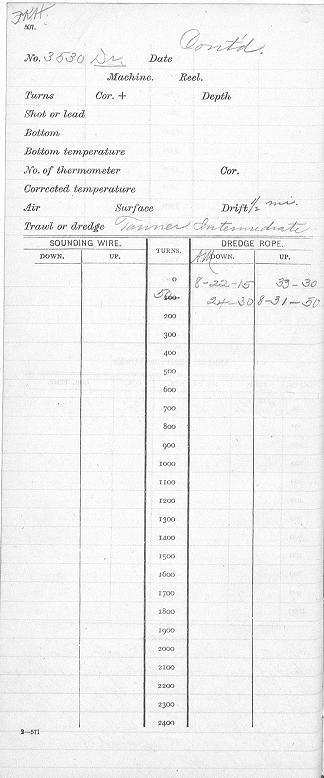 FRH.
501.
Cont'd.
No. 3530 Dr. Date
Machine. Reel.
Turns Cor. + Depth
Shot or lead
Bottom
Bottom temperature
No. of thermometer Cor.
Corrected temperature
Air Surface Drift 1/2 mi.
Trawl or dredge Tanner Intermediate
SOUNDING WIRE. TURNS. DREDGE ROPE.
DOWN. UP. AM DOWN. UP.
0 8-22-15 39-30
50 100 24-30 8-31-50
200
300
400
500
600
700
800
900
1000
1100
1200
1300
1400
1500
1600
1700
1800
1900
2000
2100
2200
2300
2400
2—571